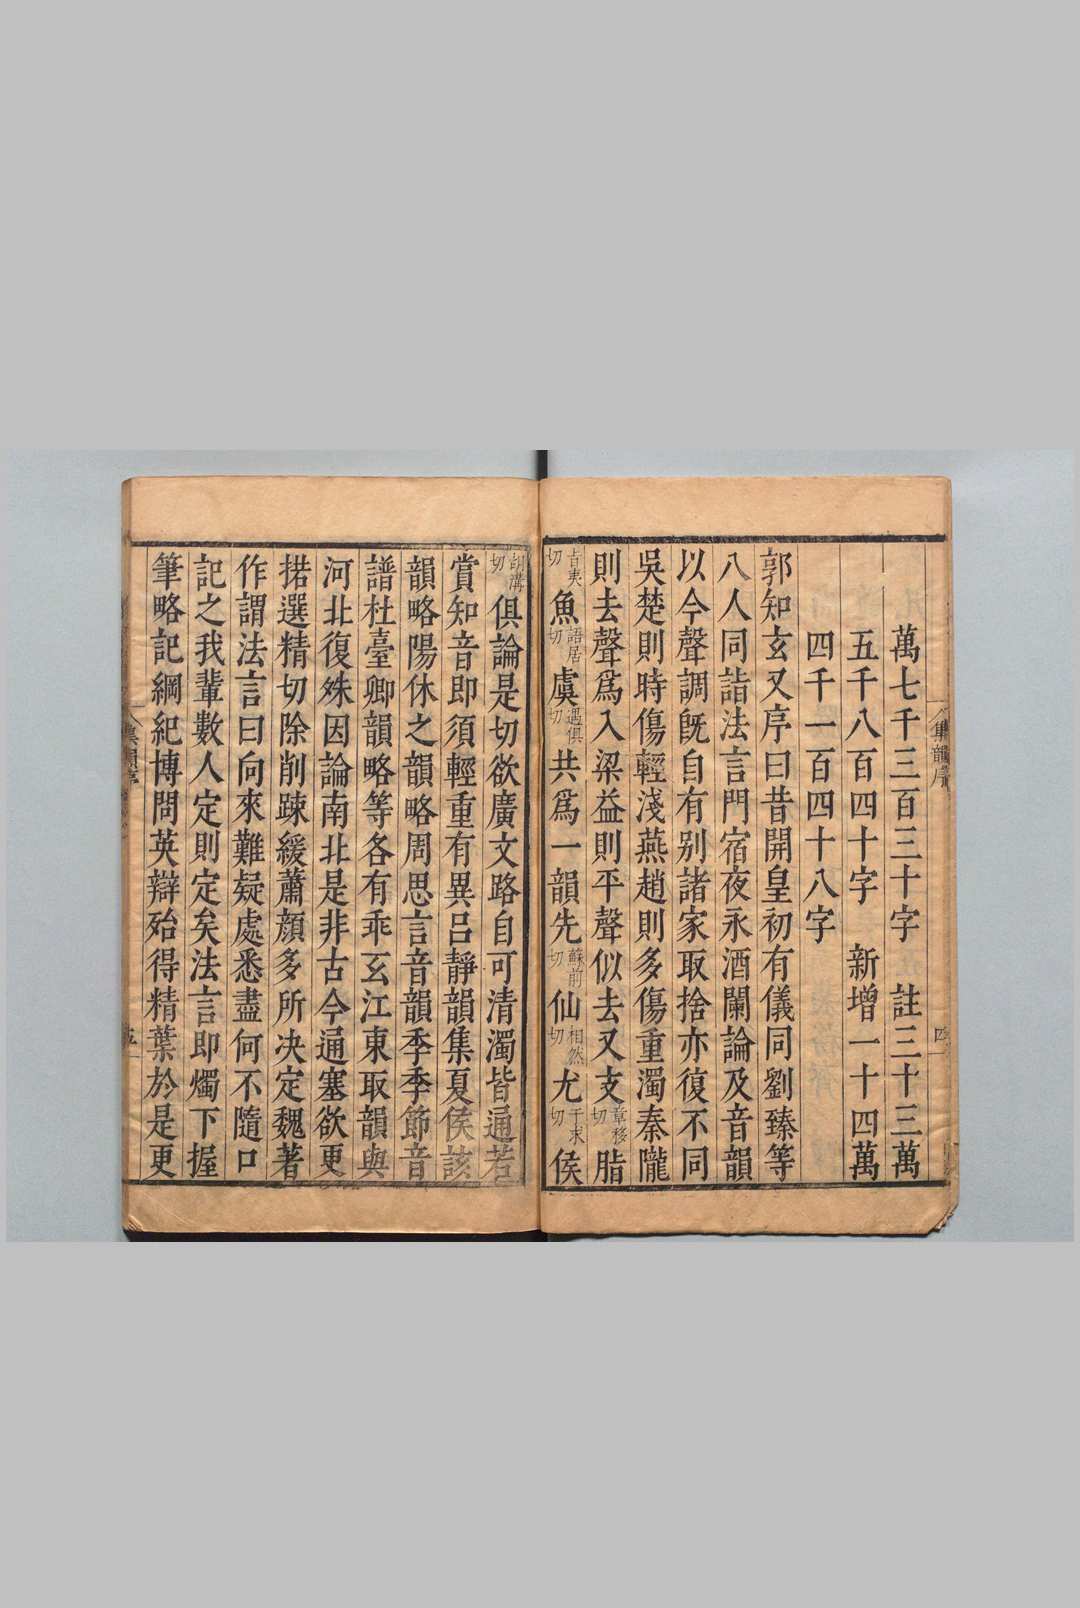 一萬七千三百三十字　註三十三萬
五千八百四十字　新增一十四萬
四千一百四十八字
郭知玄又序曰昔開皇初有儀同劉臻等
八人同詣法言門宿夜永酒闌論及音韻
以今聲調旣自有别諸家取捨亦復不同
吳楚則時傷輕淺燕趙則多傷重濁秦隴
則去聲爲入梁益則平聲似去又支章移切脂
旨夷切魚語居切虞遇俱切共爲一韻先蘇前切仙相然切尤于求切侯
集韻序
四
胡溝切俱論是切欲廣文路自可清濁皆通若
賞知音即須輕重有異呂靜韻集夏侯該
韻略陽休之韻略周思言音韻季季節音
譜杜臺卿韻略等各有乖玄江東取韻與
河北復殊因論南北是非古今通塞欲更
捃選精切除削疎緩蕭顔多所决定魏著
作謂法言曰向來難疑處悉盡何不隨口
記之我輩數人定則定矣法言即燭下握
筆略記綱紀博問英辯殆得精葉於是更
集韻序
五